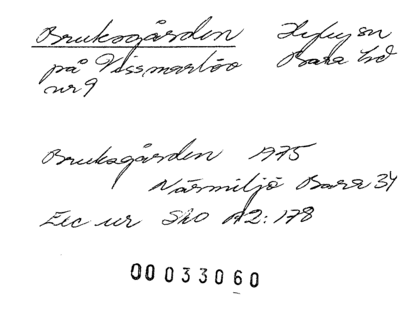 Bruksgården
på Vissmarlöv Bara hd
nr 9
Bruksgården 1975
Närmiljö Bara 34
Exc ur SkO A2:178
0003306 0